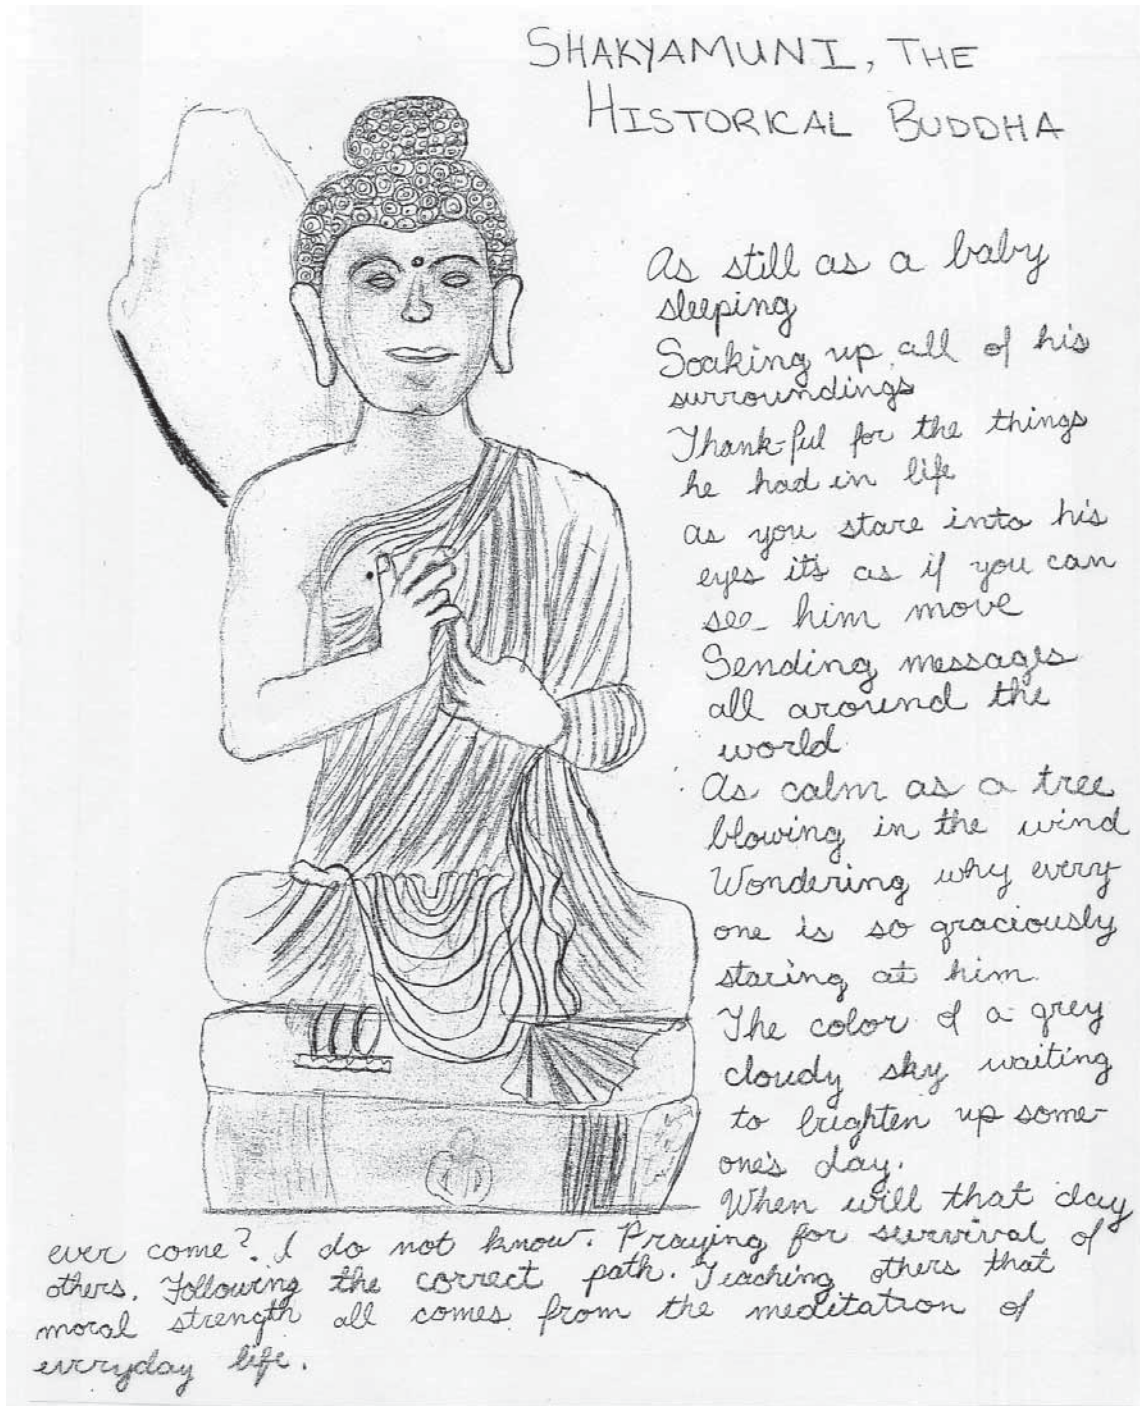 SHAKYAMUNI, THE
HISTORICAL BUDDHA
As still as a baby
sleeping
Soaking up all of his
surroundings
Thank-ful for the things
he had in life
as you stare into his
eyes it's as if you can
see him move
Sending messages
all around the
world
As calm as a tree
blowing in the wind
Wondering why every
one is so graciously
staring at him.
The color of a grey
cloudy sky waiting
to brighten up some-
one's day.
When will that day
ever come? I do not know. Praying for survival of
others. Following the correct path. Teaching others that
moral strength all comes from the meditation of
everyday life.